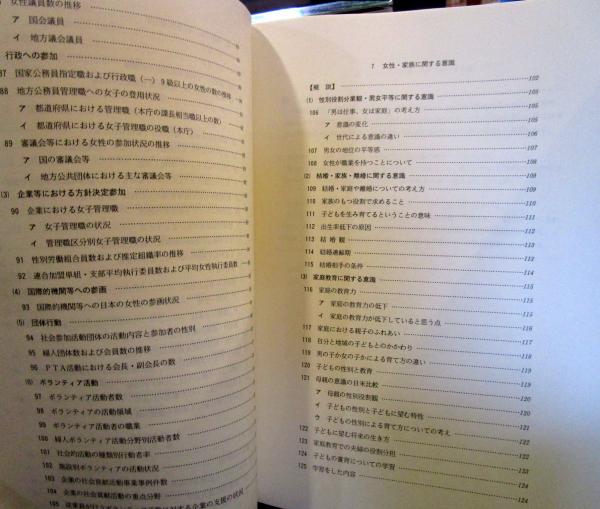 女性議員数の推移
ア 国会議員
イ 地方議会議員
行政への参加
87 国家公務員指定職および行政職(一)9級以上の女性の数の推移
88 地方公務員管理職への女子の登用状況
ア 都道府県における管理職(本庁の課長相当職以上の数)
イ 都道府県における女子管理職の役職(本庁)
89 審議会等における女性の参加状況の推移
ア 国の審議会等
イ 地方公共団体における主な審議会等
(3) 企業等における方針決定参加
90 企業における女子管理職
ア 女子管理職の状況
イ 管理職区分別女子管理職の状況
91 性別労働組合員数および推定組織率の推移
92 連合加盟単組・支部平均執行委員数および平均女性執行委員数
(4) 国際的機関等への参画
93 国際的機関等への日本の女性の参画状況
(5) 団体行動
94 社会参加活動団体の活動内容と参加者の性別
95 婦人団体数および会員数の推移
96 PTA活動における会長・副会長の数
(6) ボランティア活動
97 ボランティア活動者数
98 ボランティアの活動領域
99 ボランティア活動者の職業
100 婦人ボランティア活動分野別活動者数
101 社会的活動の種類別行動者率
102 施設別ボランティアの活動状況
103 企業の社会貢献活動事業事例件数
104 企業の社会貢献活動の重点分野
105 従業員が行うボランティア活動に対する企業の支援の状況
7 女性・家族に関する意識
【概 説】 102
(1) 性別役割分業観・男女平等に関する意識
106 「男は仕事、女は家庭」の考え方 105
ア 意識の変化 105
イ 世代による意識の違い 105
107 男女の地位の平等感 106
108 女性が職業を持つことについて 107
(2) 結婚・家族・離婚に関する意識
109 結婚・家庭や離婚についての考え方 109
110 家族のもつ役割で求めること 110
111 子どもを生み育てるということの意味 111
112 出生率低下の原因 112
113 結婚観 113
114 結婚適齢期 114
115 結婚相手の条件 114
(3) 家庭教育に関する意識
116 家庭の教育力 115
ア 家庭の教育力の低下 115
イ 家庭の教育力が低下していると思う点 116
117 家庭における親子のふれあい 117
118 自分と地域の子どもとのかかわり 118
119 男の子か女の子かによる育て方の違い 119
120 子どもの性別と教育 120
121 母親の意識の日米比較 121
ア 母親の性別役割観 121
イ 子どもの性別と子どもに望む特性 121
ウ 子どもの性別による育て方についての考え 122
122 子どもに望む将来の生き方 122
123 家庭教育での夫婦の役割分担 123
124 子どもの養育についての学習 124
125 学習をした内容 124